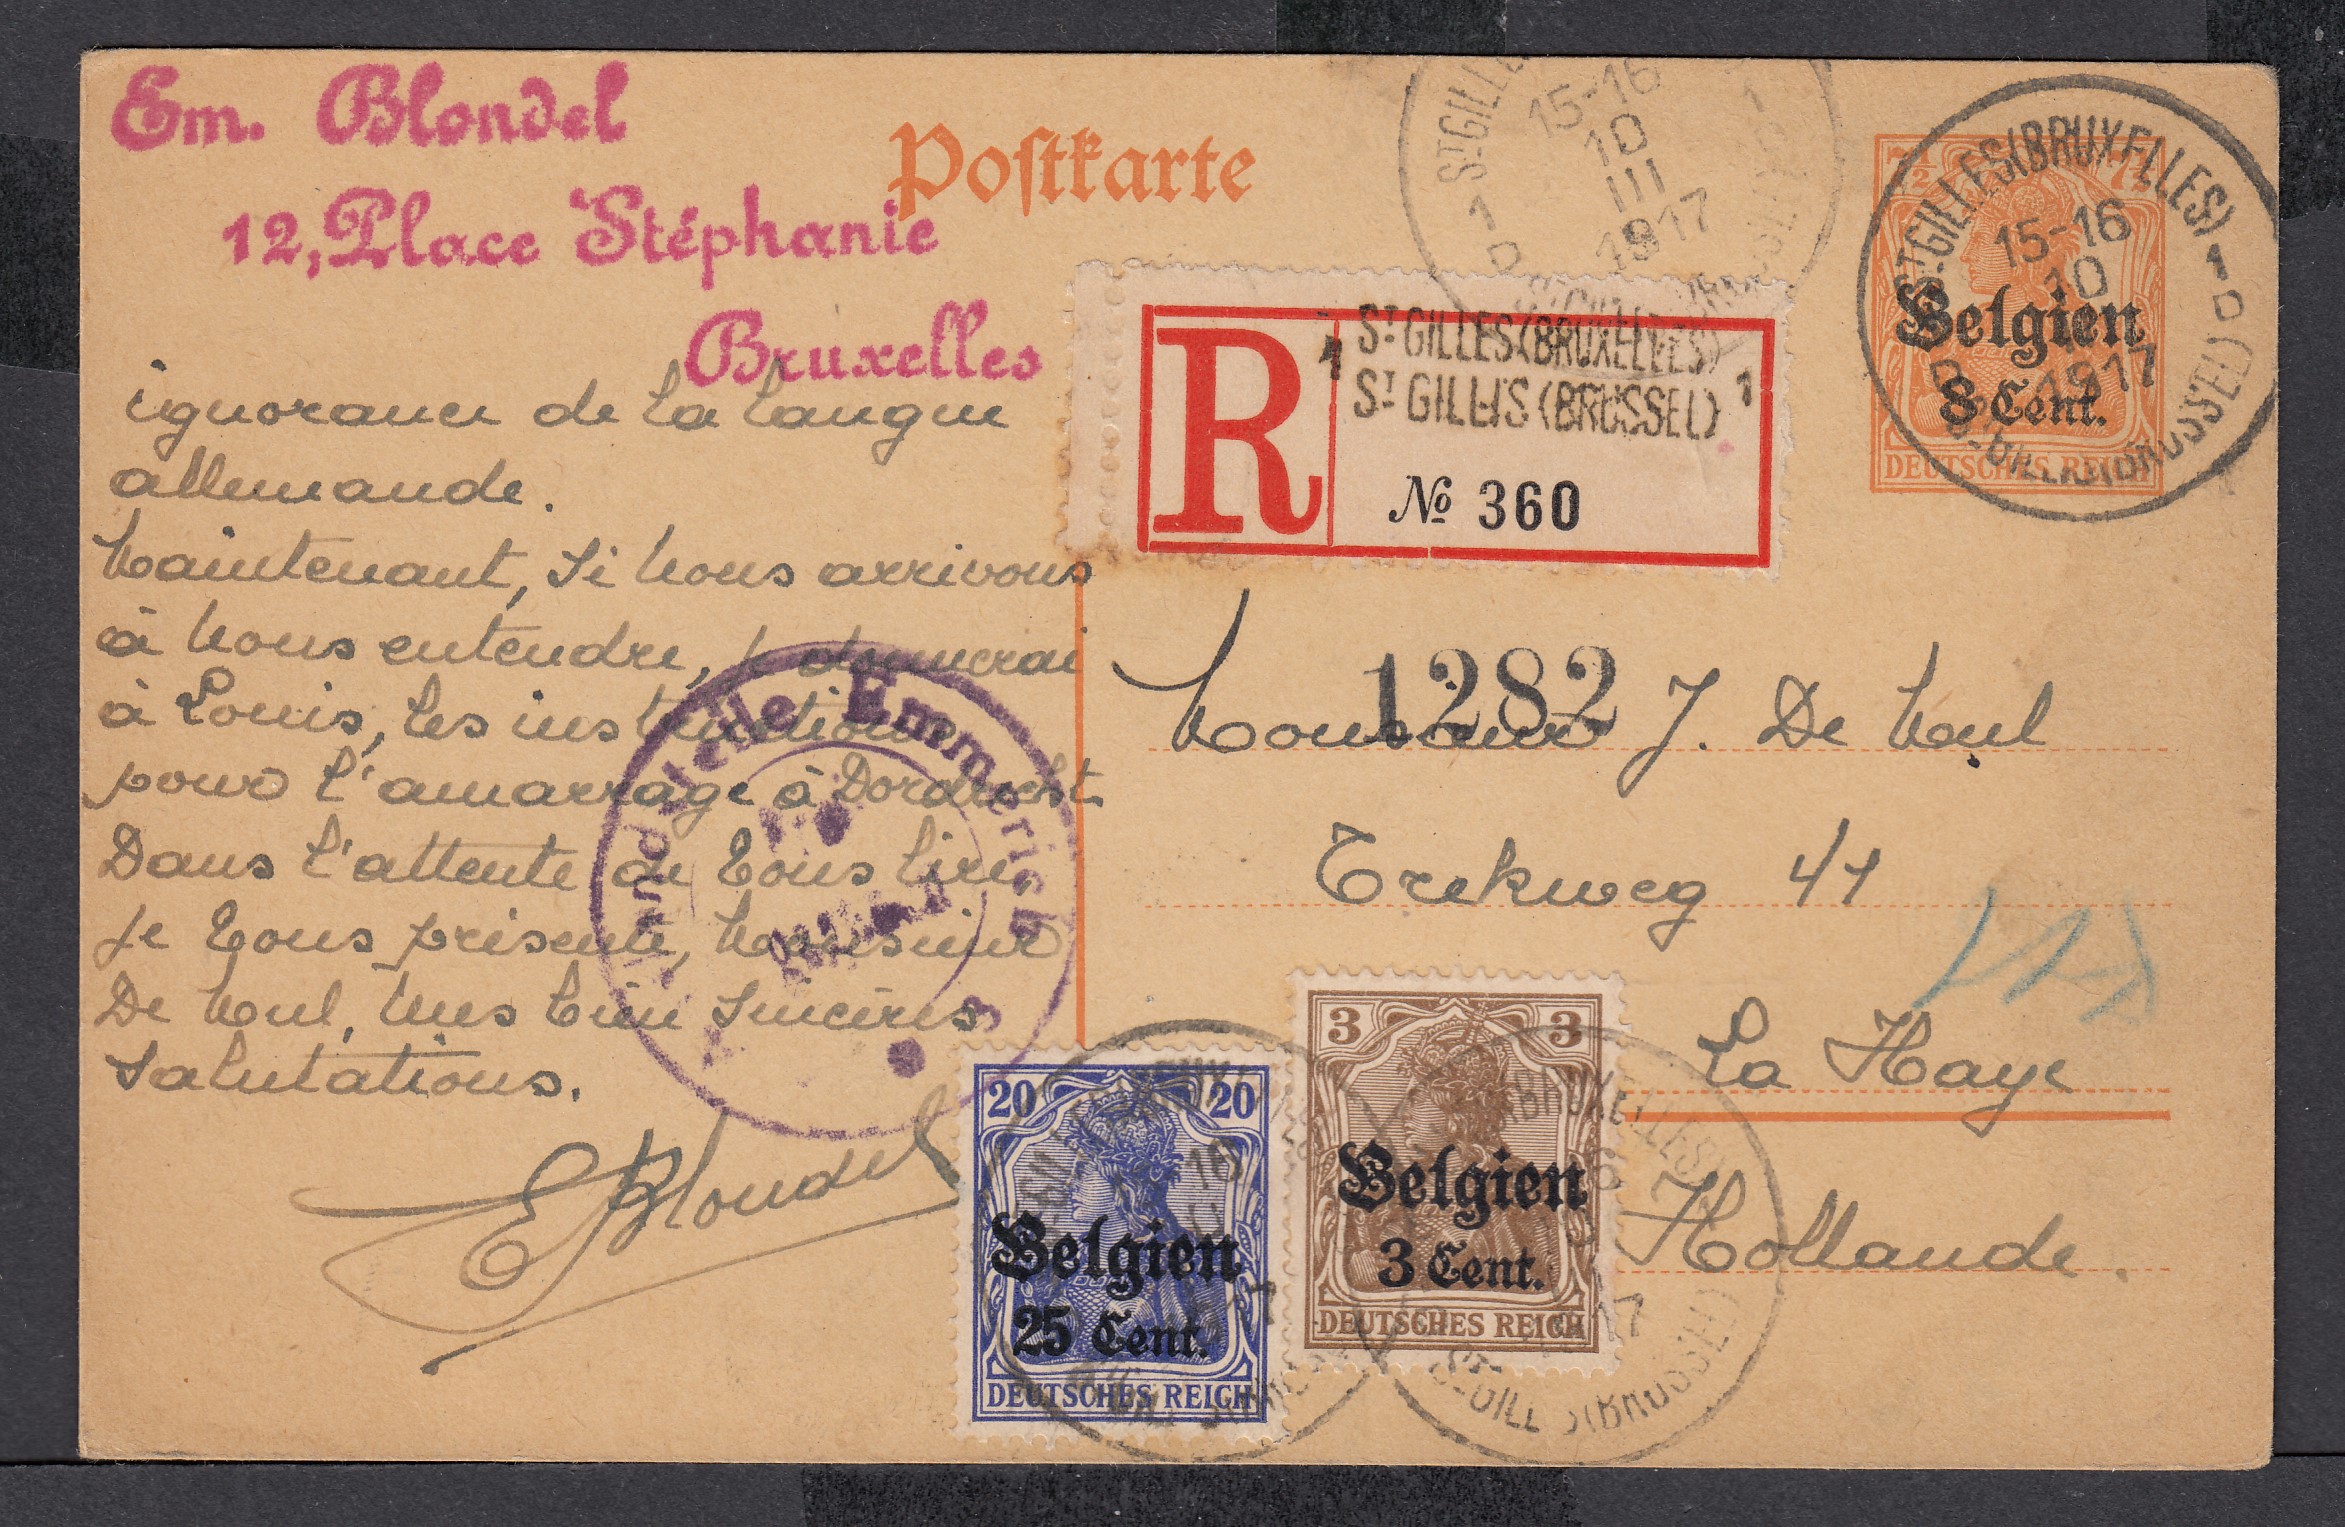 Em. Blondel
12, Place Stéphanie
Bruxelles
Postkarte
ignorance de la langue
allemande.
Maintenant, si nous arrivons
à nous entendre, je donnerai
à Louis, les instructions
pour l'amarrage à Dordrecht.
Dans l'attente de vous lire,
je vous présente, Monsieur
De Meul, mes bien sincères
salutations.
EBlondel
ST GILLES
15-16
10
III
1917
1
1
R
1 ST GILLES (BRUXELLES)
ST GILLIS (BRUSSEL) 1
№ 360
7½ 7½
Belgien
8 Cent.
DEUTSCHES REICH
ST GILLES (BRUXELLES) 1
15-16
10
1917
D ST GILLIS (BRUSSEL)
1282
Monsieur J. De Meul
Trekweg 41
La Haye
Hollande.
Emmerich
20 20
Belgien
25 Cent.
DEUTSCHES REICH
3 3
Belgien
3 Cent.
DEUTSCHES REICH
(BRUXELLES)
17
ST GILLIS (BRUSSEL)